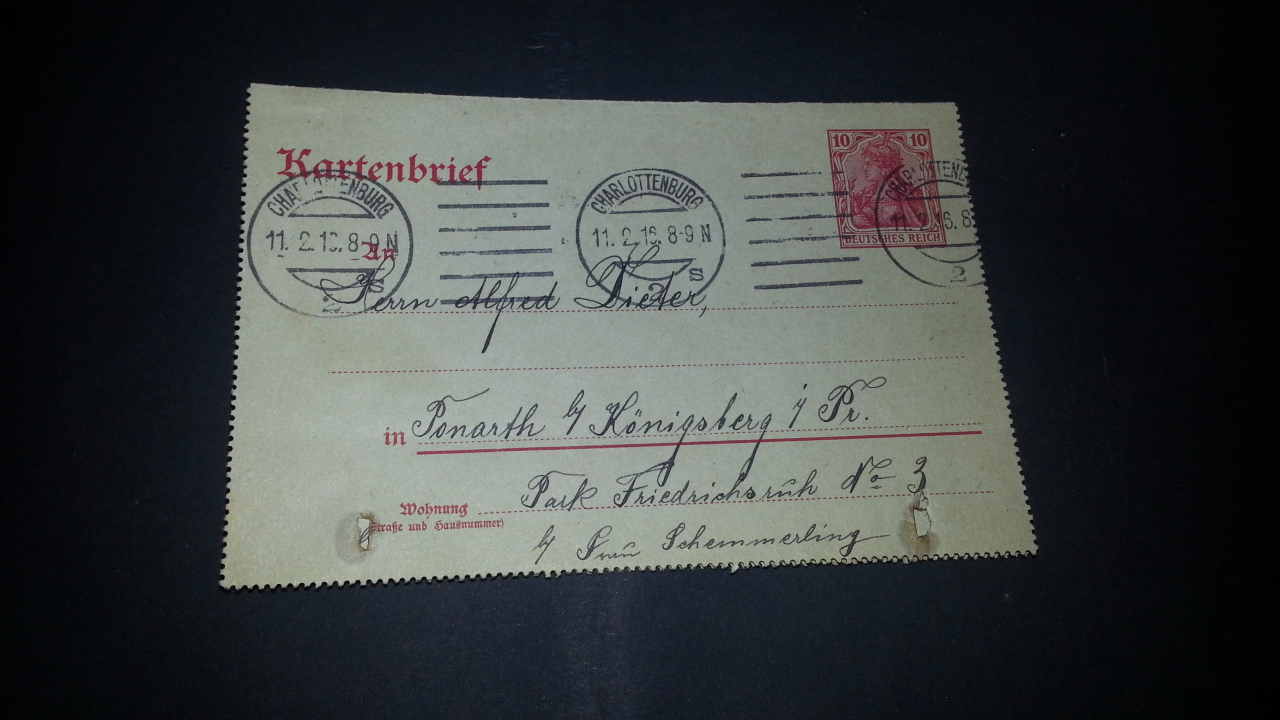 Kartenbrief
10 10
DEUTSCHES REICH
CHARLOTTENBURG
11. 2. 16. 8-9 N
2 s
CHARLOTTENBURG
11. 2. 16. 8-9 N
2 s
CHARLOTTENB
11. 2. 16. 8
2
An
Herrn Alfred Dieter,
in Ponarth b/ Königsberg i/ Pr.
Wohnung
(Straße und Hausnummer)
Park Friedrichsruh No 3
b/ Frau Schemmerling